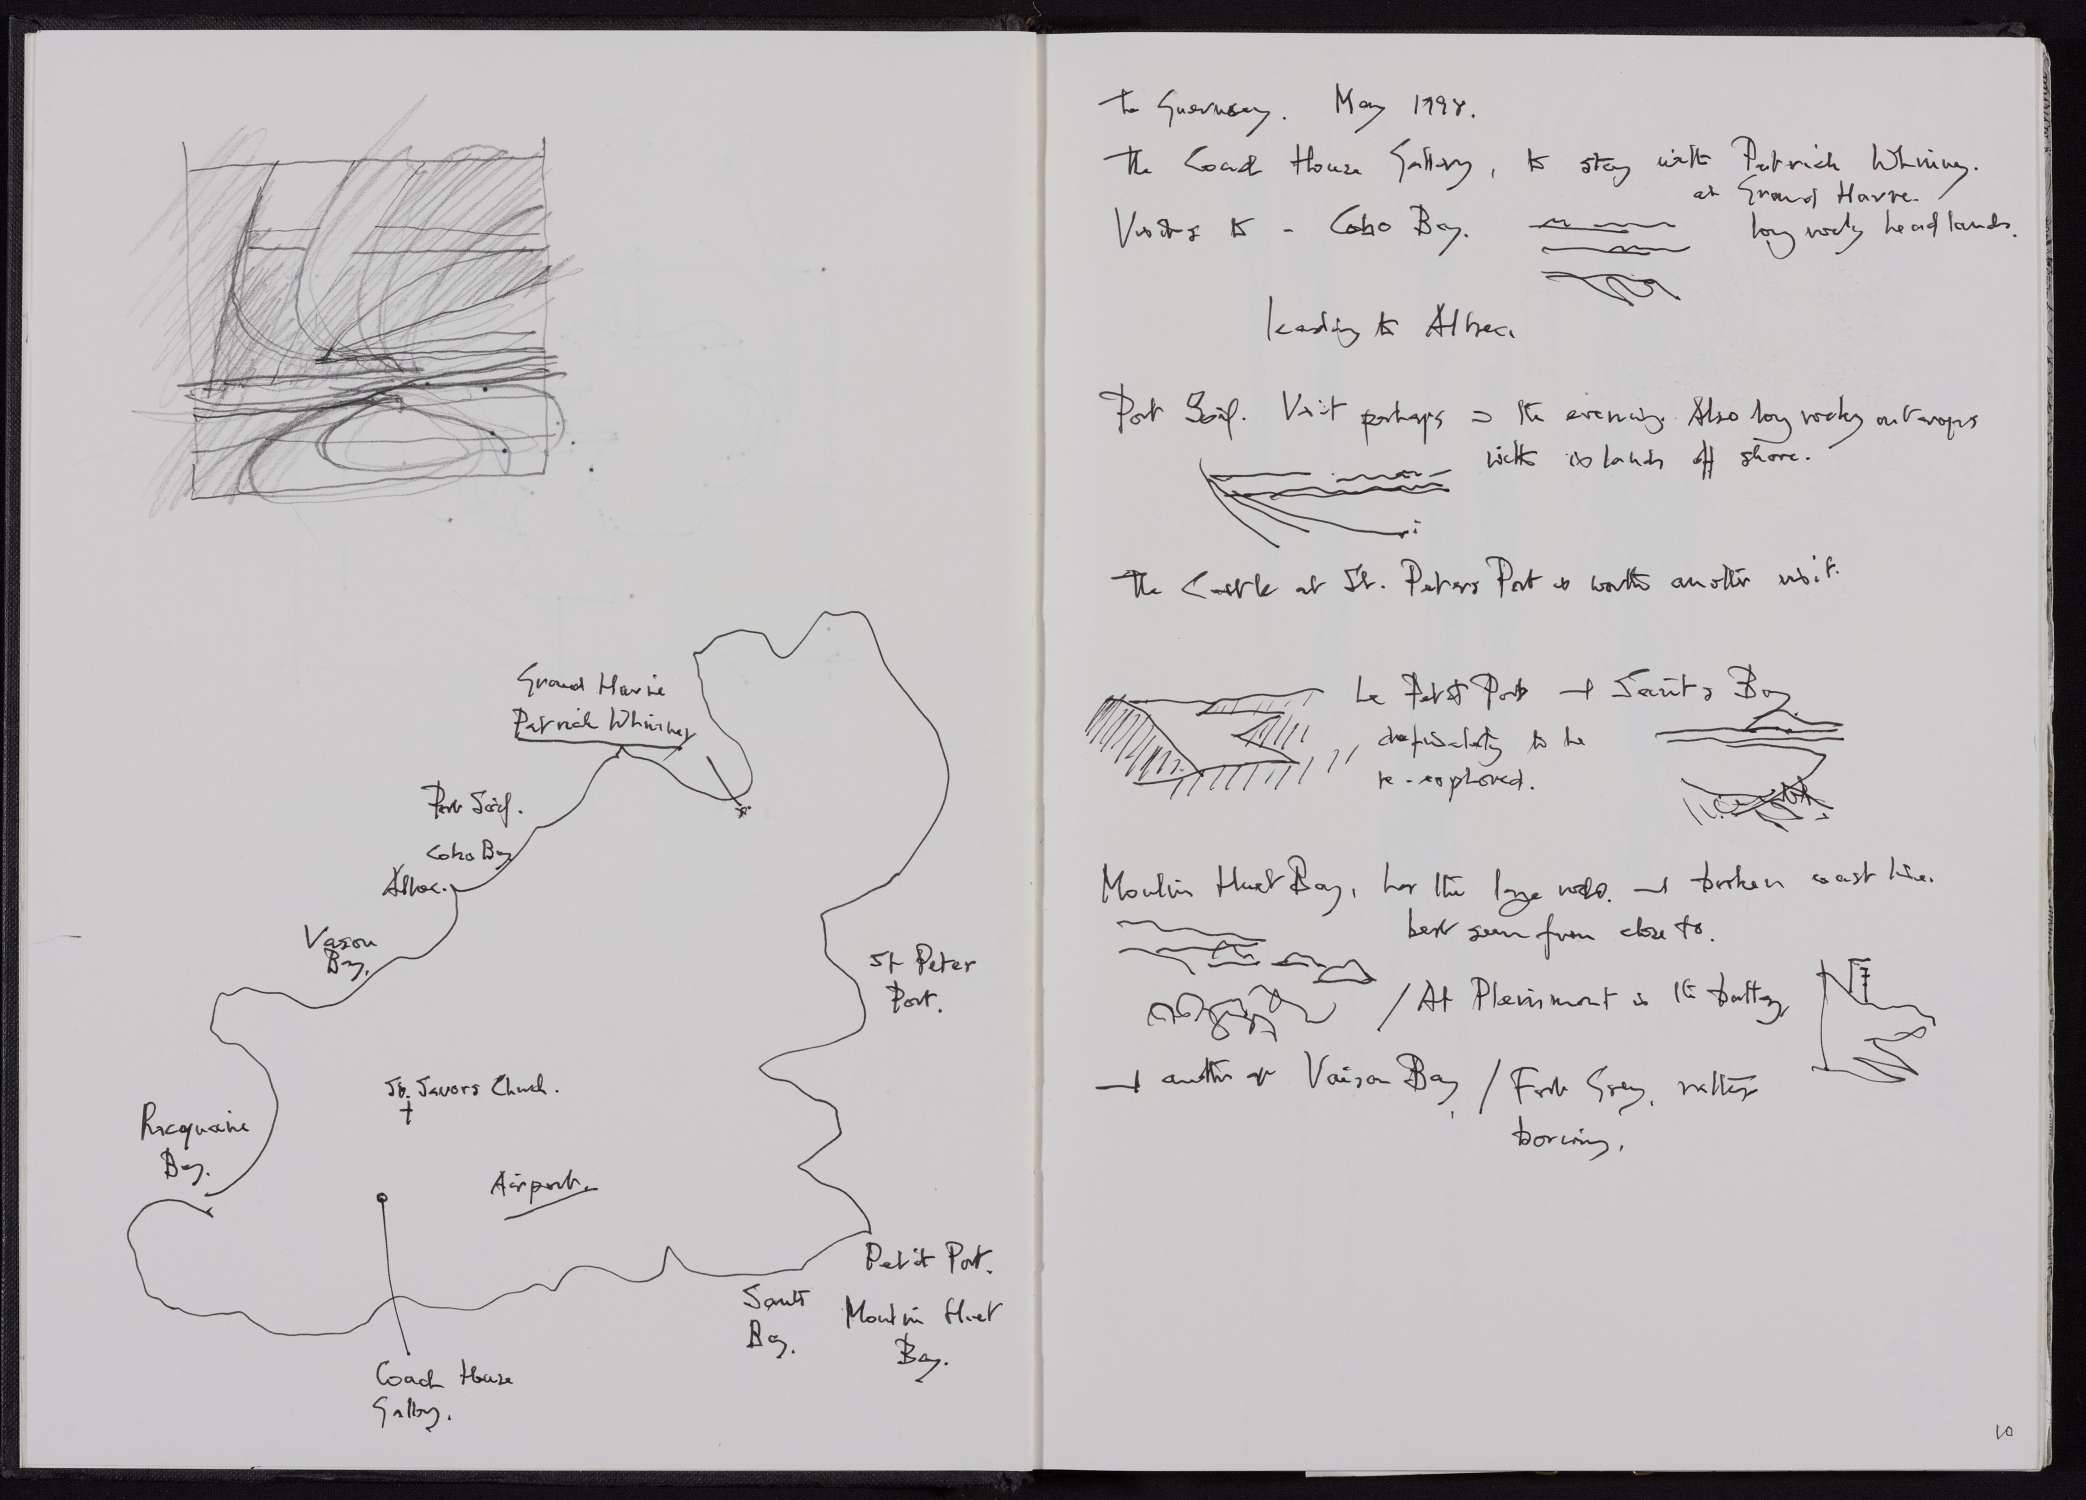 Grand Havre
Patrick Whinney
Port Soif.
Cobo Bay
Albec.
Vason
Bay.
St Peter
Port.
St. Savors Church.
Racquaine
Bay.
Airport.
Petit Port.
Saints
Bay.
Moulin Huet
Bay.
Coach House
Gallery.
To Guernsey. May 1998.
The Coach House Gallery, to stay with Patrick Whinney.
at Grand Havre.
Visits to - Cobo Bay. long rocky headlands.
leading to Albec.
Port Soif. Visit perhaps in the evening. Also long rocky outcrops
with islands off shore.
The Castle at St. Peters Port is worth another visit.
Le Petit Port and Saints Bay
definitely to be
re-explored.
Moulin Huet Bay, has the large rocks. and broken coast line.
best seen from close to.
/ At Pleinmont is the battery
and another at Vaison Bay, / Fort Grey, rather
boring.
10